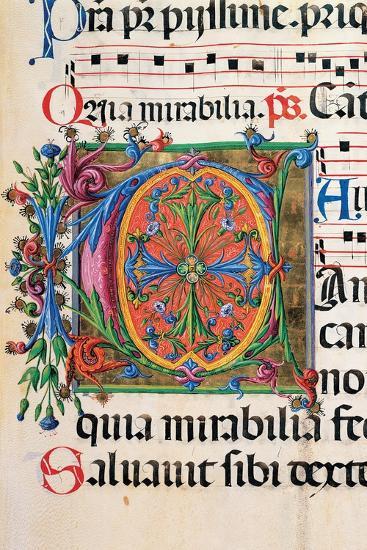 Pra pr piissime. priq
Quia mirabilia. ps. Cāt
An
An
can
no
quia mirabilia fec
Saluauit sibi dexte